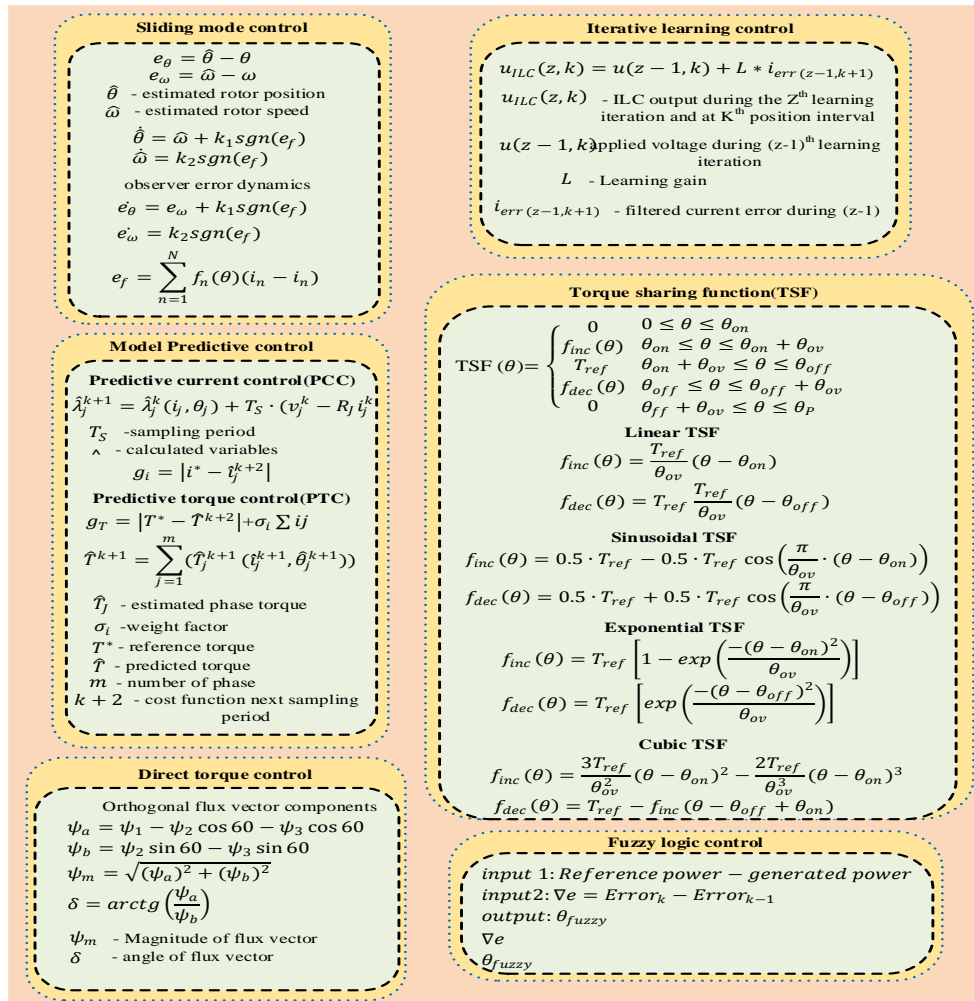 Sliding mode control
e_θ = θ̂ − θ
e_ω = ω̂ − ω
θ̂ - estimated rotor position
ω̂ - estimated rotor speed
θ̂̇ = ω̂ + k₁sgn(e_f)
ω̂̇ = k₂sgn(e_f)
observer error dynamics
ė_θ = e_ω + k₁sgn(e_f)
ė_ω = k₂sgn(e_f)
e_f = ∑_{n=1}^{N} f_n(θ)(i_n − i_n)
Model Predictive control
Predictive current control(PCC)
λ̂_j^{k+1} = λ̂_j^k(i_j, θ_j) + T_S · (v_j^k − R_J i_j^k
T_S -sampling period
^ - calculated variables
g_i = |i* − î_j^{k+2}|
Predictive torque control(PTC)
g_T = |T* − T̂^{k+2}|+σ_i ∑ ij
T̂^{k+1} = ∑_{j=1}^{m}(T̂_j^{k+1} (î_j^{k+1}, θ̂_j^{k+1}))
T̂_J - estimated phase torque
σ_i -weight factor
T* - reference torque
T̂ - predicted torque
m - number of phase
k + 2 - cost function next sampling
period
Direct torque control
Orthogonal flux vector components
ψ_a = ψ₁ − ψ₂ cos 60 − ψ₃ cos 60
ψ_b = ψ₂ sin 60 − ψ₃ sin 60
ψ_m = √((ψ_a)² + (ψ_b)²)
δ = arctg(ψ_a/ψ_b)
ψ_m - Magnitude of flux vector
δ - angle of flux vector
Iterative learning control
u_ILC(z, k) = u(z − 1, k) + L * i_{err (z−1,k+1)}
u_ILC(z, k) - ILC output during the Z^th learning
iteration and at K^th position interval
u(z − 1, k)applied voltage during (z-1)^th learning
iteration
L - Learning gain
i_{err (z−1,k+1)} - filtered current error during (z-1)
Torque sharing function(TSF)
TSF (θ)= {
0 0 ≤ θ ≤ θ_on
f_inc(θ) θ_on ≤ θ ≤ θ_on + θ_ov
T_ref θ_on + θ_ov ≤ θ ≤ θ_off
f_dec(θ) θ_off ≤ θ ≤ θ_off + θ_ov
0 θ_ff + θ_ov ≤ θ ≤ θ_P
Linear TSF
f_inc(θ) = T_ref/θ_ov (θ − θ_on)
f_dec(θ) = T_ref T_ref/θ_ov (θ − θ_off)
Sinusoidal TSF
f_inc(θ) = 0.5 · T_ref − 0.5 · T_ref cos(π/θ_ov · (θ − θ_on))
f_dec(θ) = 0.5 · T_ref + 0.5 · T_ref cos(π/θ_ov · (θ − θ_off))
Exponential TSF
f_inc(θ) = T_ref [1 − exp(−(θ − θ_on)²/θ_ov)]
f_dec(θ) = T_ref [exp(−(θ − θ_off)²/θ_ov)]
Cubic TSF
f_inc(θ) = 3T_ref/θ_ov² (θ − θ_on)² − 2T_ref/θ_ov³ (θ − θ_on)³
f_dec(θ) = T_ref − f_inc(θ − θ_off + θ_on)
Fuzzy logic control
input 1: Reference power − generated power
input2: ∇e = Error_k − Error_{k−1}
output: θ_fuzzy
∇e
θ_fuzzy